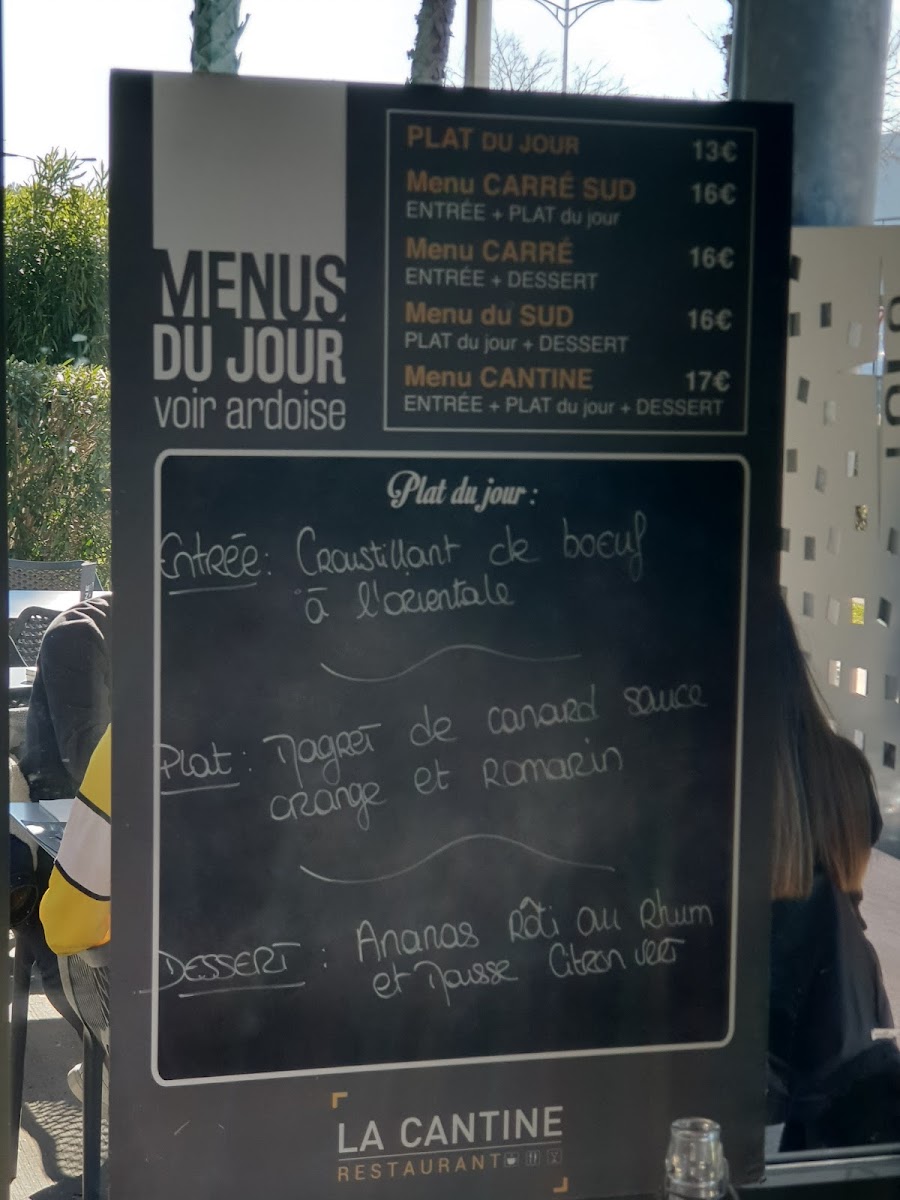 MENUS
DU JOUR
voir ardoise
PLAT DU JOUR 13€
Menu CARRÉ SUD 16€
ENTRÉE + PLAT du jour
Menu CARRÉ 16€
ENTRÉE + DESSERT
Menu du SUD 16€
PLAT du jour + DESSERT
Menu CANTINE 17€
ENTRÉE + PLAT du jour + DESSERT
Plat du jour :
Entrée : Croustillant de boeuf
à l'orientale
Plat : Magret de canard sauce
orange et Romarin
DESSERT : Ananas Rôti au Rhum
et Mousse Citron vert
LA CANTINE
RESTAURANT